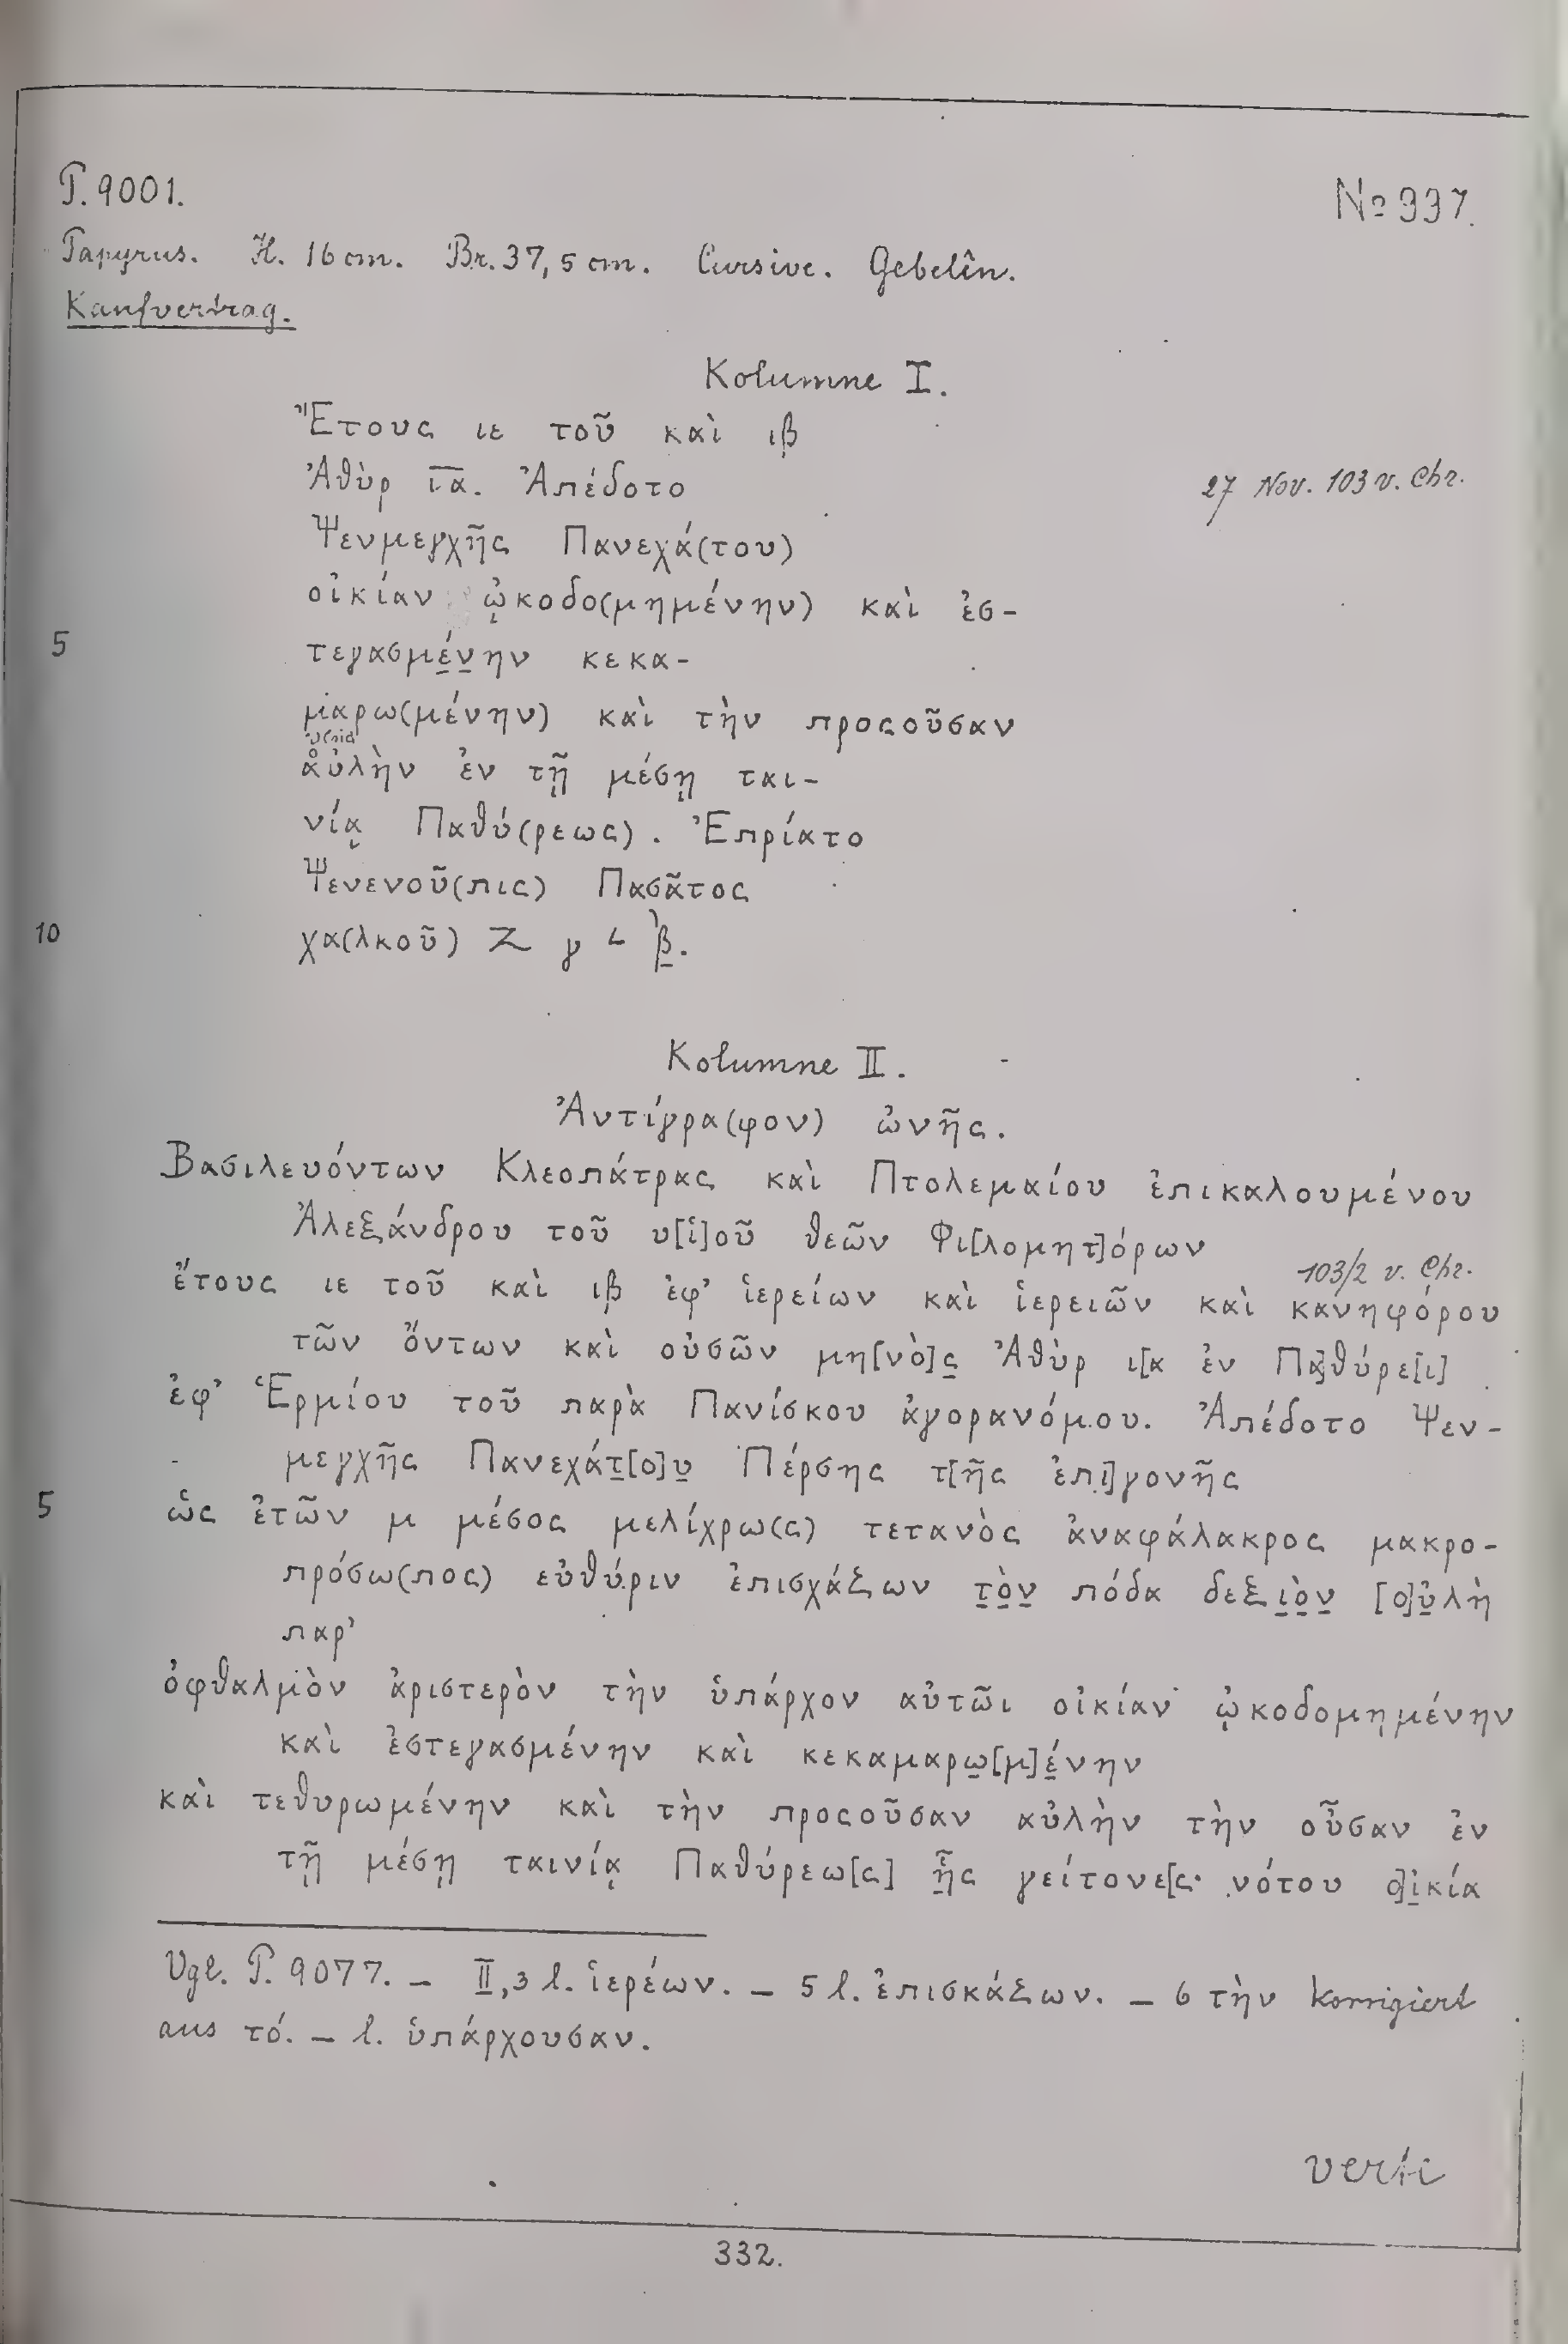 P. 9001.
No 997.
Papyrus. H. 16 cm. Br. 37,5 cm. Cursive. Gebelîn.
Kaufvertrag.
Kolumne I.
Ἔτους ιε τοῦ καὶ ιβ
Ἁθὺρ ι̅α̅. Ἀπέδοτο
27 Nov. 103 v. Chr.
Ψενμεγχῆς Πανεχά(του)
οἰκίαν ᾠκοδο(μημένην) καὶ ἐσ-
5 τεγασμέ̣ν̣ην κεκα-
μαρω(μένην) καὶ τὴν προςοῦσαν
αὐλὴν ἐν τῇ μέσῃ ται-
νίᾳ Παθύ(ρεως). Ἐπρίατο
Ψενενοῦ(πις) Πασᾶτος
10 χα(λκοῦ) γ β̣.
Kolumne II.
Ἀντίγρα(φον) ὠνῆς.
Βασιλευόντων Κλεοπάτρας καὶ Πτολεμαίου ἐπικαλουμένου
Ἀλεξάνδρου τοῦ υ[ἱ]οῦ θεῶν Φι[λομητ]όρων
103/2 v. Chr.
ἔτους ιε τοῦ καὶ ιβ ἐφ' ἱερείων καὶ ἱερειῶν καὶ κανηφόρου
τῶν ὄντων καὶ οὐσῶν μη[νὸ]ς̣ Ἁθὺρ ι[α ἐν Πα]θύρε[ι]
ἐφ' Ἑρμίου τοῦ παρὰ Πανίσκου ἀγορανόμου. Ἀπέδοτο Ψεν-
μεγχῆς Πανεχάτ̣[ο]υ̣ Πέρσης τ[ῆς ἐπι]γονῆς
5 ὡς ἐτῶν μ μέσος μελίχρω(ς) τετανὸς ἀναφάλακρος μακρο-
πρόσω(πος) εὐθύριν ἐπισχάζων τ̣ὸ̣ν̣ πόδα δεξι̣ὸ̣ν̣ [ο]ὐ̣λὴ
παρ'
ὀφθαλμὸν ἀριστερὸν τὴν ὑπάρχον αὐτῶι οἰκίαν ᾠκοδομημένην
καὶ ἐστεγασμένην καὶ κεκαμαρω̣[μ]έ̣νην
καὶ τεθυρωμένην καὶ τὴν προςοῦσαν αὐλὴν τὴν οὖσαν ἐν
τῇ μέσῃ ταινίᾳ Παθύρεω[ς] ἧ̣ς γείτονε[ς· νότου ο]ἰ̣κία
Vgl. P. 9077. – II,3 l. ἱερέων. – 5 l. ἐπισκάζων. – 6 τὴν korrigiert
aus τό. – l. ὑπάρχουσαν.
verte
332.